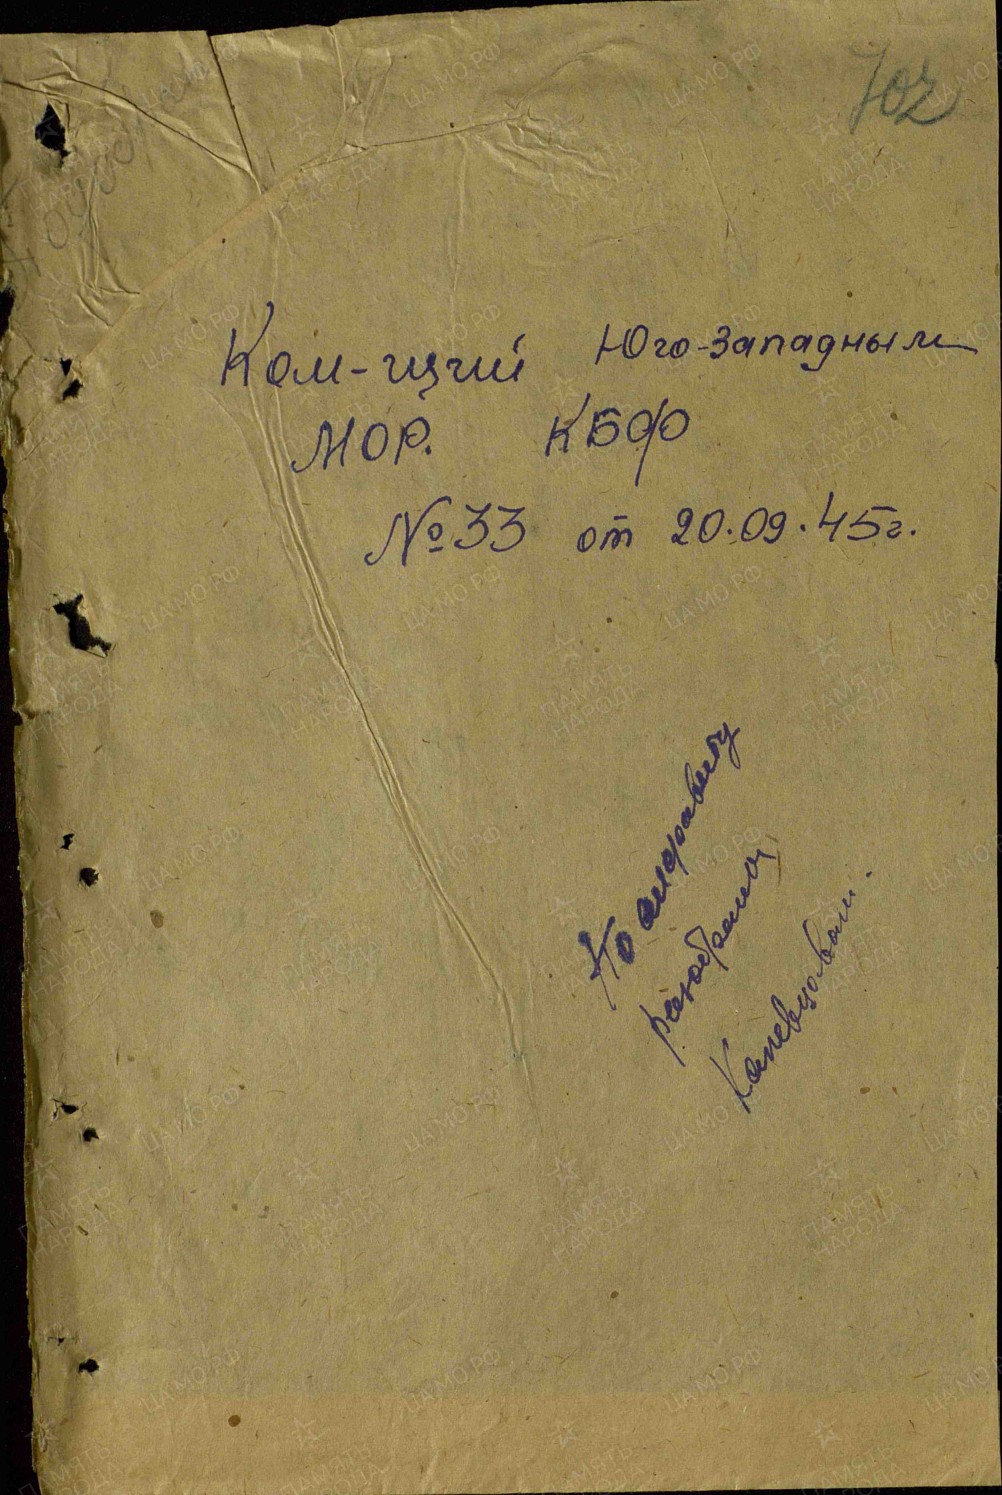 702
Ком-щий Юго-Западным
МОР. КБФ
№33 от 20.09.45г.
По алфавиту
разобрана
ЦАМО.РФ
ПАМЯТЬ
НАРОДА